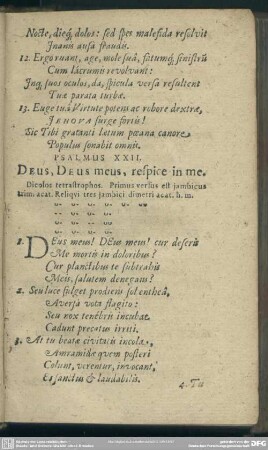 Nocte, dieq́; dolos: sed spes malefida resolvit
Inanis ausa fraude.
12. Ergò ruant, age, mole suâ, fatumq́; sinistrũ
Cum lacrumis revolvant:
Inq́; suos oculos, da, spicula versa resultent
Tuæ parata turbæ.
13. Euge tuâ Virtute potem ac robore dextræ,
JEHOVA surge fortis!
Sic Tibi gratanti lætum pæana canore
Populus sonabit omnis.
PSALMUS XXII.
DEUS, DEUS meus, respice in me.
Dicolos tetrastrophos. Primus versus est jambicus
trim. acat. Reliqvi tres jambici dimetri acat. h. m.
1. DEus meus! DEus meus! cur deseris
Me mortis in doloribus?
Cur planctibus te subtrahis
Meis, salutem denegans?
2. Seu luce fulget prodiens sol entheâ,
Aversa vota flagito:
Seu nox tenebris incubat
Cadunt precatus irriti.
3. At tu beatæ civitatis incola,
Amramidæ quem posteri
Colunt, verentur, invocant,
Es sanctus & laudabilis.
4. Tu